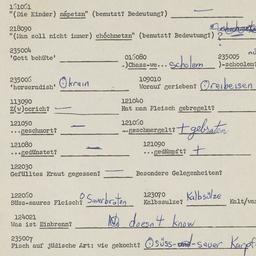 161061
"(Die Kinder) nápetzn" (benutzt? Bedeutung?) —
218090
"(Man soll nicht immer) chóchmetzn" (benutzt? Bedeutung?) ?
235004
'Gott behüte' 015080 235005
.)Chass-we... scholem )-schoolem
235006 109010
'horseradish' Chrain Woraus gerieben? Oreibeisen
113090 121040
Hat man Fleisch gebregelt?
121050 121060
...geschmort? — ...geschmergelt? + gebraten
121080 121090
...gedünstet? — ...gedämpft? +
122030
Gefülltes Kraut gegessen? — Besondere Gelegenheiten?
122050 123070
Süss-saures Fleisch? Sauerbraten Kalbssülze? Kalbsülze Kalt/wa
124021
Was ist Einbrenn? doesn't know
235007
Fisch auf jüdische Art: wie gekocht? süss-und-sauer Karpf